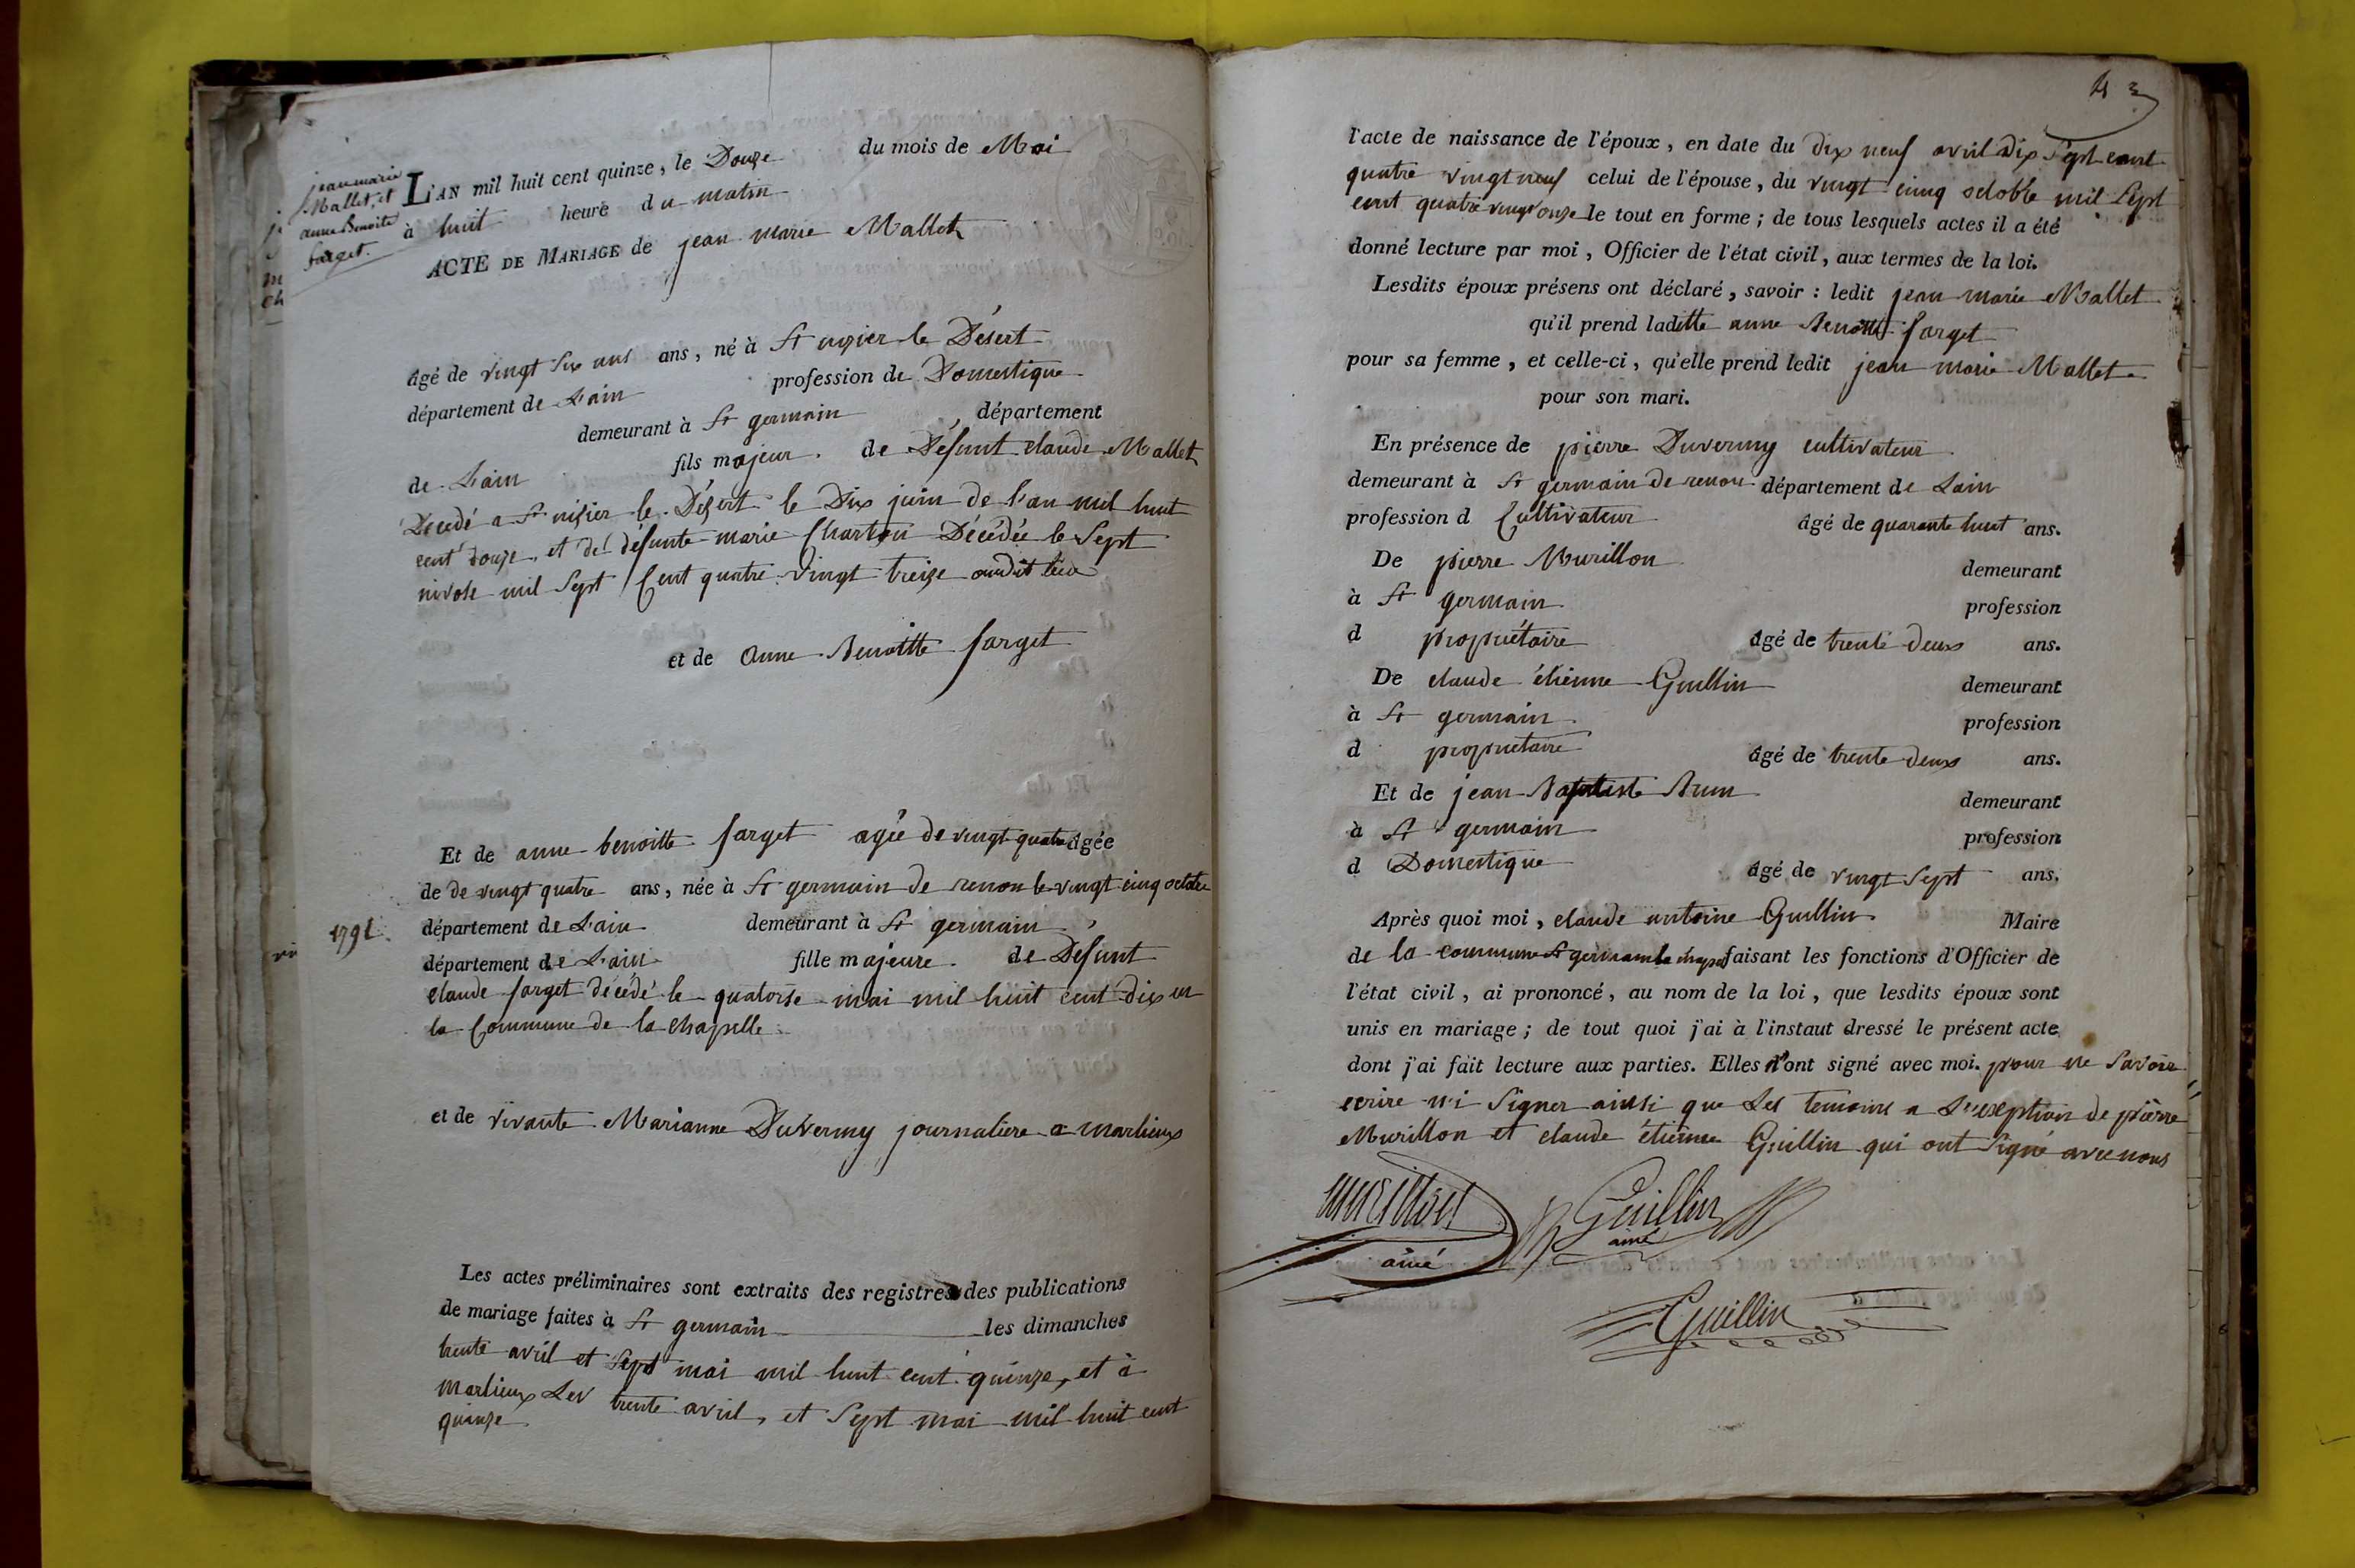 jean marie
Mallet, et
anne Benoite
farget.
L'AN mil huit cent quinze, le Douze du mois de Mai
à huit heure du matin
ACTE DE MARIAGE de jean marie Mallet
âgé de vingt Six ans ans, né à St nizier le Désert
département de L'ain profession de Domestique
demeurant à St germain département
de L'ain fils majeur. de Défunt claude Mallet
Décédé a St nizier le Désert le Dix juin de l'an mil huit
cent douze, et de défunte marie Charton Décédée le Sept
nivose mil Sept Cent quatre vingt treize audit lieu
et de anne Benoitte farget
Et de anne benoitte farget agée de vingt quatre âgée
de de vingt quatre ans, née à St germain de renon le vingt cinq octobre
1791.
département de L'ain demeurant à St germain
département de L'ain fille majeure. de Défunt
claude farget décédé le quatorse mai mil huit cent dix en
la Commune de la chapelle
et de vivante Marianne Duverny journaliere a marlieux
Les actes préliminaires sont extraits des registres des publications
de mariage faites à St germain les dimanches
trente avril et Sept mai mil huit cent quinze, et à
marlieux Les trente avril, et Sept mai mil huit cent
quinze
43
l'acte de naissance de l'époux, en date du dix neuf avril dix Sept cent
quatre vingt neuf celui de l'épouse, du vingt cinq octobre mil Sept
cent quatre vingt onze le tout en forme; de tous lesquels actes il a été
donné lecture par moi, Officier de l'état civil, aux termes de la loi.
Lesdits époux présens ont déclaré, savoir: ledit jean marie Mallet
qu'il prend laditte anne Benoitte farget
pour sa femme, et celle-ci, qu'elle prend ledit jean marie Mallet
pour son mari.
En présence de pierre Duverny cultivateur
demeurant à St germain de renon département de Lain
profession d Cultivateur âgé de quarante huit ans.
De pierre Murillon demeurant
à St germain profession
d propriétaire âgé de trente deux ans.
De claude étienne Guillin demeurant
à St germain profession
d propriétaire âgé de trente deux ans.
Et de jean Baptiste Brun demeurant
à St germain profession
d Domestique âgé de vingt Sept ans.
Après quoi moi, claude antoine Guillin Maire
de la commune St germain faisant les fonctions d'Officier de
l'état civil, ai prononcé, au nom de la loi, que lesdits époux sont
unis en mariage; de tout quoi j'ai à l'instaut dressé le présent acte
dont j'ai fait lecture aux parties. Elles n'ont signé avec moi. pour ne Savoir
ecrire ni Signer ainsi que Les temoins a L'exeption de pierre
Murillon et claude étienne Guillin qui ont Signé avec nous
murillon Guillin
ainé ainé
Guillin